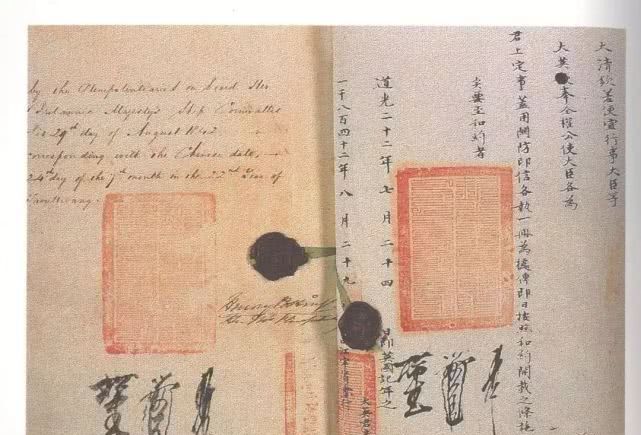 by the Plenipotentiaries on board Her
Britannic Majesty's Ship Cornwallis
29th day of August 1842
orresponding with the Chinese date,
24th day of the 7th month in the 22nd Year of
大清欽差便宜行事大臣等
大英奉全權公使大臣各為
君上定事蓋用關防印信各執一冊為據俾即日按照和約開載之條施
矣要至和約者
道光二十二年七月二十四日即英國記年之
一千八百四十二年八月二十九
大英君主